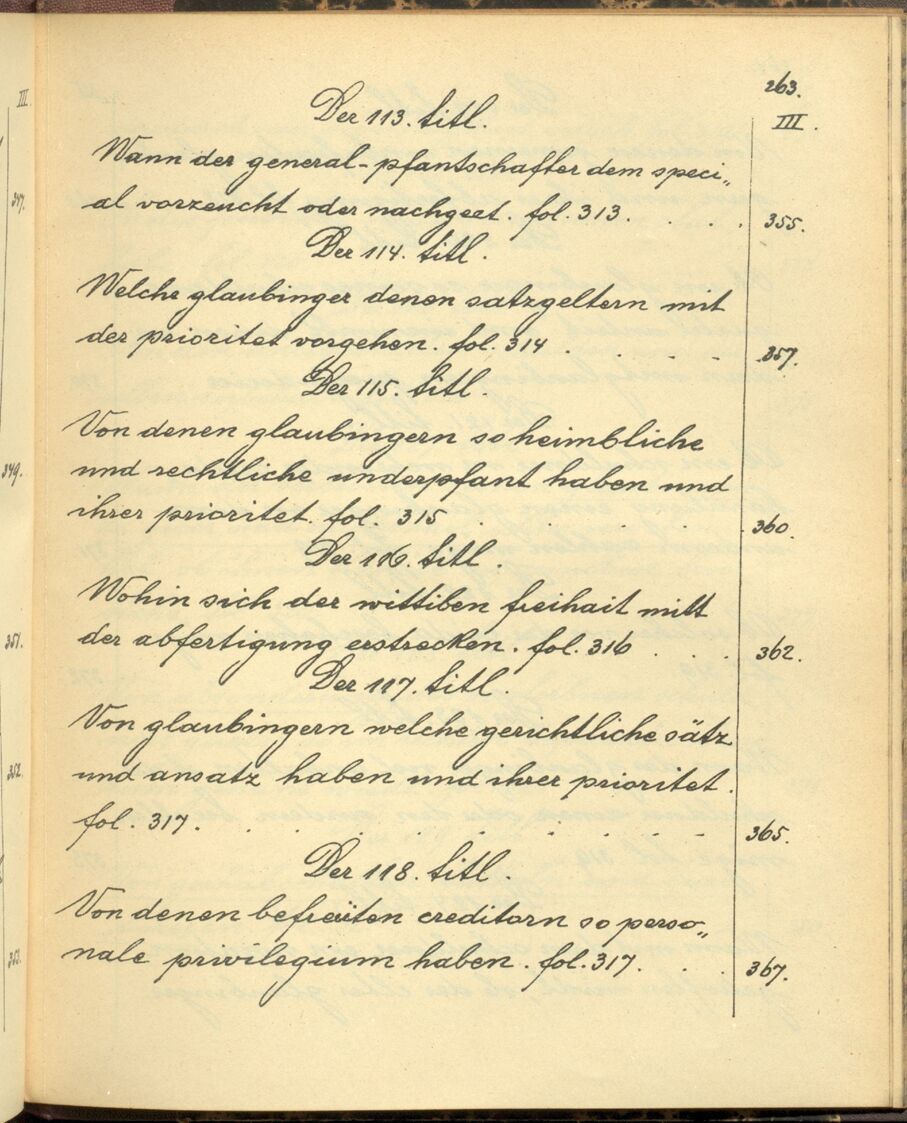 263.
III.
Der 113. titl.
Wann der general-pfantschafter dem speci„
al vorzeucht oder nachgeet. fol. 313. . . . 355.
Der 114. titl.
Welche glaubinger denen satzgeltern mit
der prioritet vorgehen. fol. 314 . . . . 357.
Der 115. titl.
Von denen glaubingern so heimbliche
und rechtliche underpfant haben und
ihrer prioritet. fol. 315 . . . . 360.
Der 116. titl.
Wohin sich der wittiben freihait mitt
der abfertigung erstrecken. fol. 316 . . . 362.
Der 117. titl.
Von glaubingern welche gerichtliche sätz
und ansatz haben und ihrer prioritet.
fol. 317. . . . . . . . . 365.
Der 118. titl.
Von denen befreiten creditorn so perso„
nale privilegium haben. fol. 317. . . . 367.
III.
347.
349.
351.
352.
353.